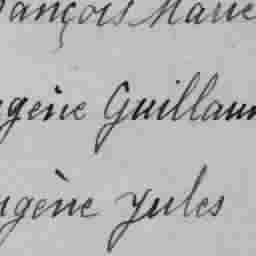 ançois Marie
gène Guillaum
ugène Jules